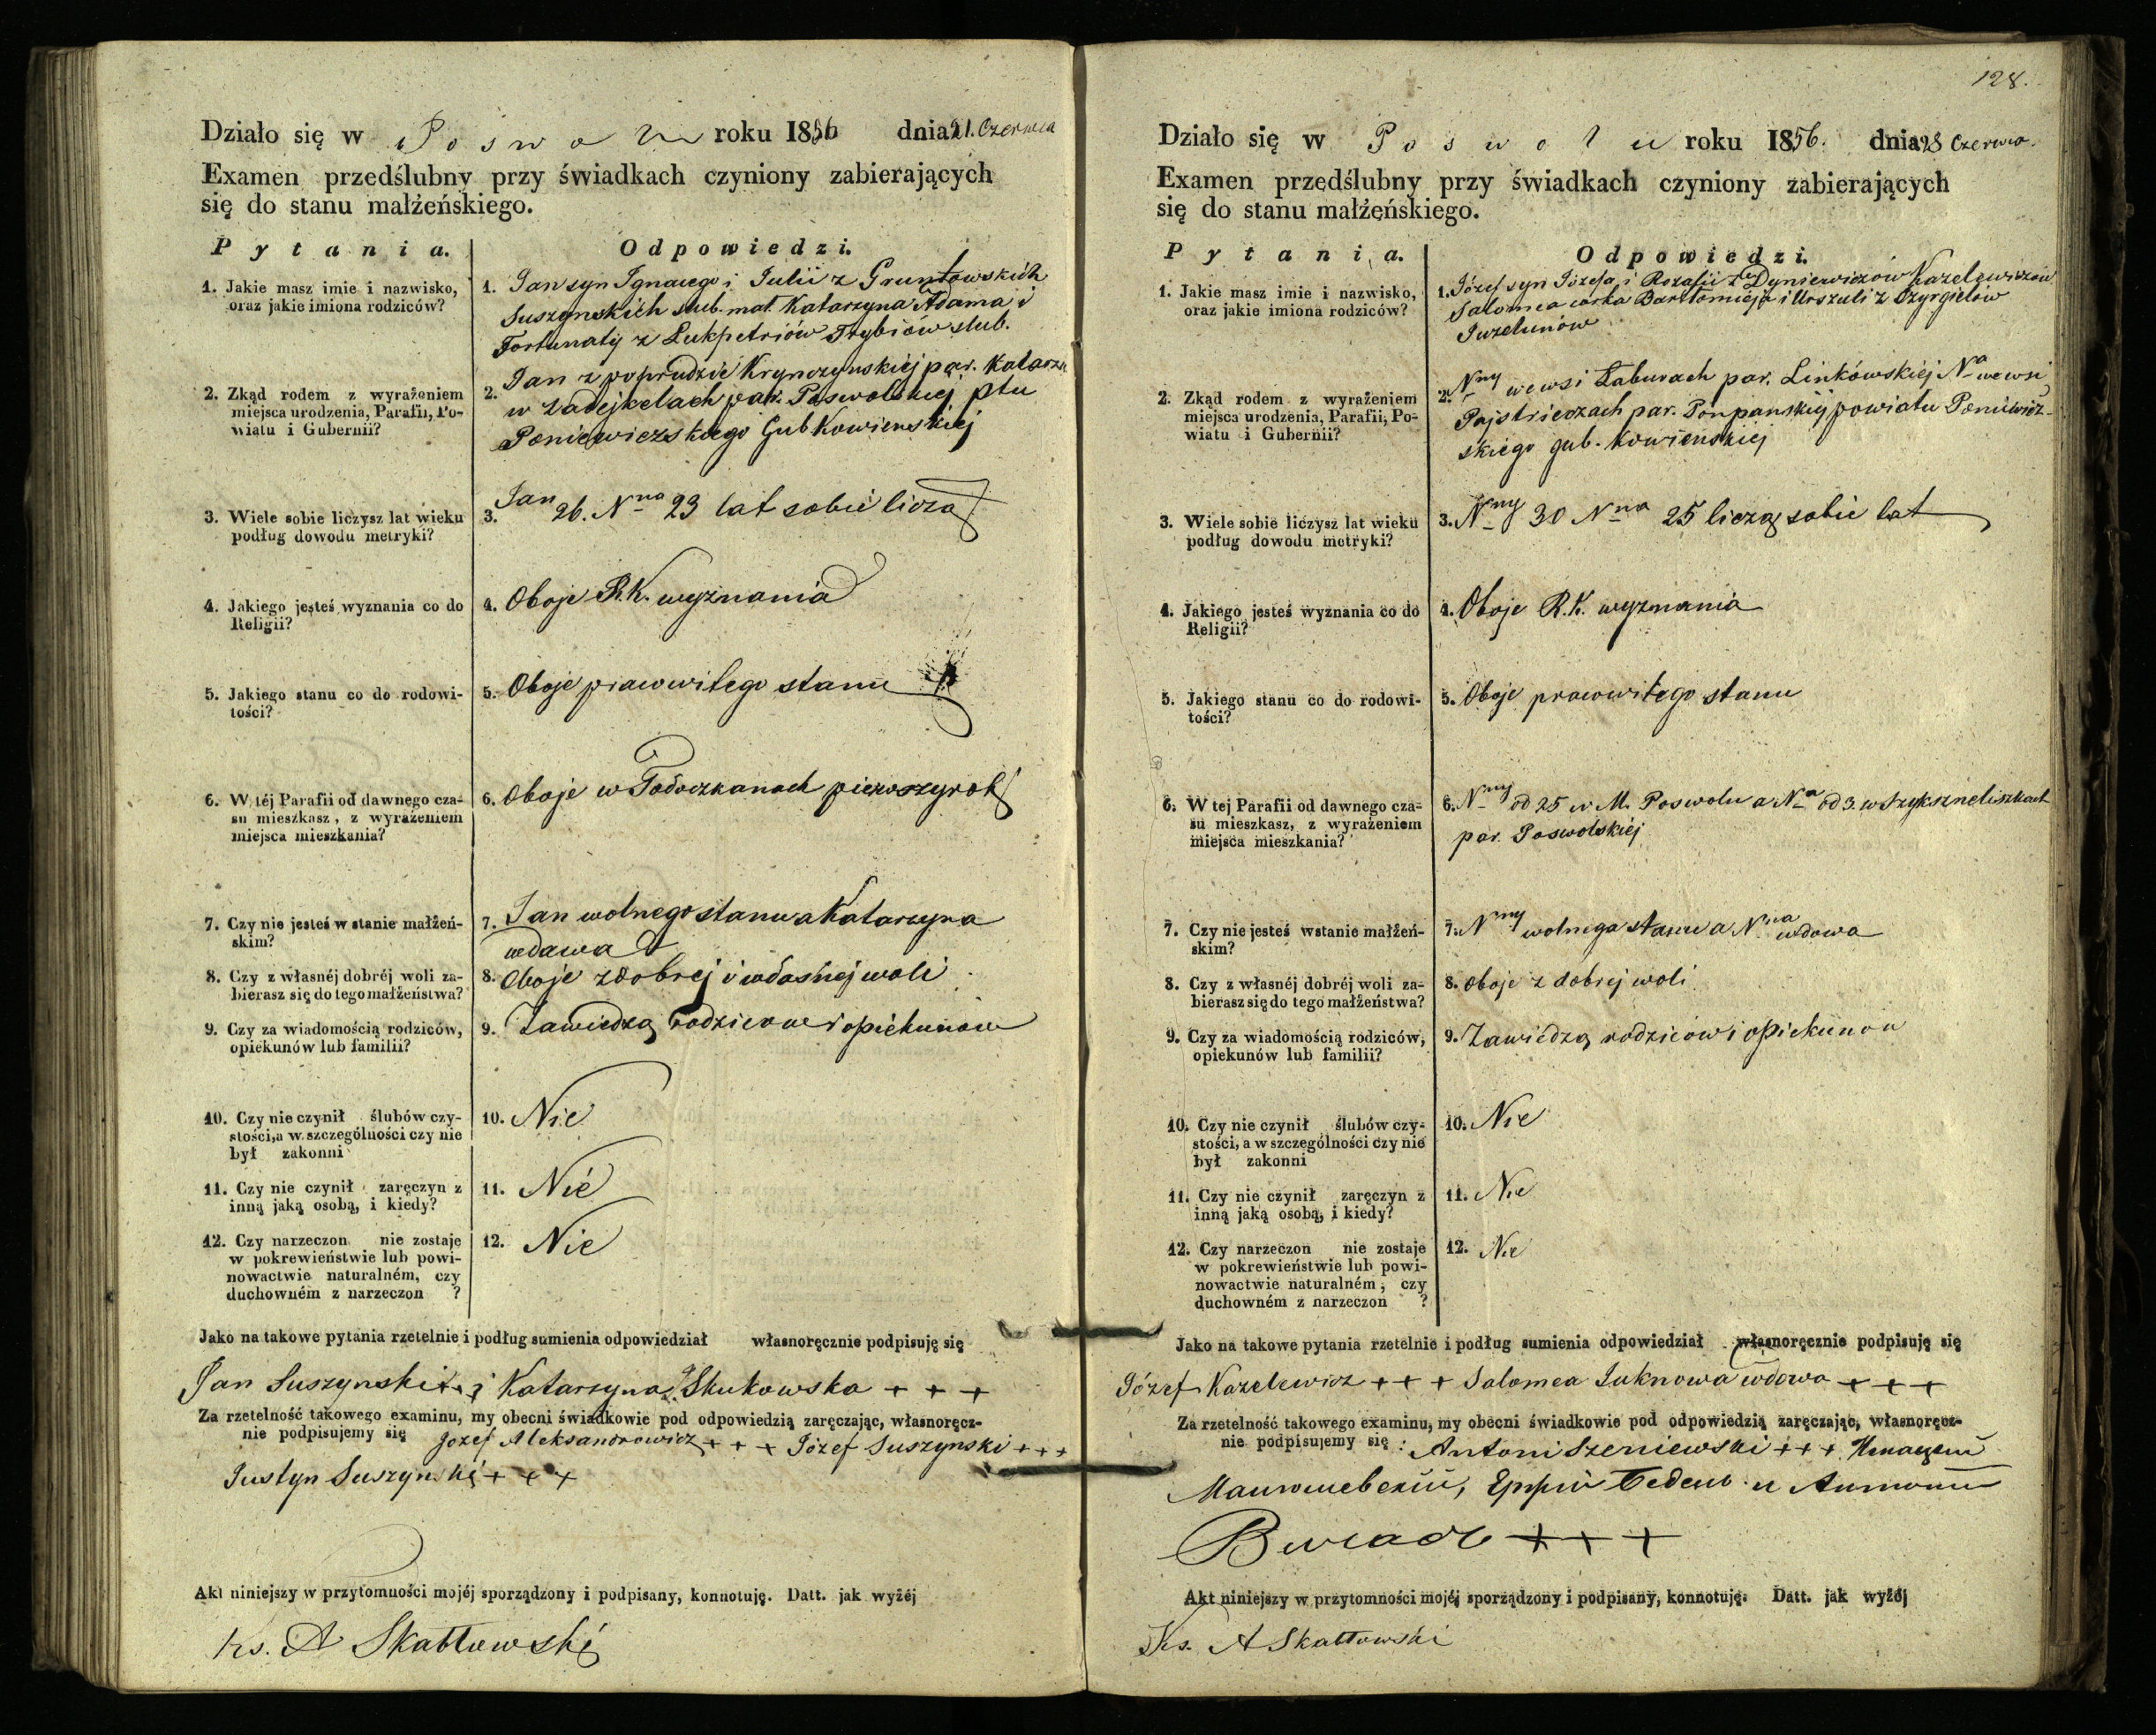 Działo się w Poswolu roku 1856 dnia 21. Czerwca
Examen przedślubny przy świadkach czyniony zabierających
się do stanu małżeńskiego.
Pytania.
Odpowiedzi.
1. Jakie masz imie i nazwisko,
oraz jakie imiona rodziców?
1. Jan syn Ignacego i Julii z Gruntowskich
Suszynskich slub. mał. Katarzyna Adama i
Fortunaty z Łukpetriów Trybiów slub.
2. Zkąd rodem z wyrażeniem
miejsca urodzenia, Parafii, Po-
wiatu i Gubernii?
2. Jan z poprudzie Krynczynskiéj par. Katarzn
w Zadejkelach par. Poswolskiej Ptu
Poniewiezskiego Gub Kowienskiéj
3. Wiele sobie liczysz lat wieku
podług dowodu metryki?
3. Jan 26. Nna 23 lat sobie liczą
4. Jakiego jesteś wyznania co do
Religii?
4. Oboje R.K. wyznania
5. Jakiego stanu co do rodowi-
tości?
5. Oboje prawowitego stanu
6. W téj Parafii od dawnego cza-
su mieszkasz, z wyrażeniem
miejsca mieszkania?
6. Oboje w pierwszy rok
7. Czy nie jesteś w stanie małżeń-
skim?
7. Jan wolnego stanu a Katarzyna
wdawa
8. Czy z własnéj dobréj woli za-
bierasz się do tego małżeństwa?
8. Oboje z dobrej i własnej woli
9. Czy za wiadomością rodziców,
opiekunów lub familii?
9. Zawiedzą rodzicow i opiekunow
10. Czy nie czynił ślubów czy-
stości, a w szczególności czy nie
był zakonni
10. Nie
11. Czy nie czynił zaręczyn z
inną jaką osobą, i kiedy?
11. Nié
12. Czy narzeczon nie zostaje
w pokrewieństwie lub powi-
nowactwie naturalném, czy
duchowném z narzeczon ?
12. Nie
Jako na takowe pytania rzetelnie i podług sumienia odpowiedział własnoręcznie podpisuję się
Jan Suszynski i Katarzyna Skukowska + + +
Za rzetelność takowego examinu, my obecni świadkowie pod odpowiedzią zaręczając, własnoręcz-
nie podpisujemy się Jozef Aleksandrowicz + + + Józef Suszynski + + +
Justyn Suszynski + + +
Akt niniejszy w przytomności mojéj sporządzony i podpisany, konnotuję. Datt. jak wyżéj
ks. A Skabłowski
128.
Działo się w Poswolu roku 1856. dnia 28 Czerwca.
Examen przedślubny przy świadkach czyniony zabierających
się do stanu małżeńskiego.
Pytania.
Odpowiedzi.
1. Jakie masz imie i nazwisko,
oraz jakie imiona rodziców?
1. Józef syn Józefa i Rozalii z Dyniewiczów Kazelewiczów
Salomea córka Bartłomieja i Urszuli z Czyrgielów
Juzelunów
2. Zkąd rodem z wyrażeniem
miejsca urodzenia, Parafii, Po-
wiatu i Gubernii?
2. Nny we wsi Łaburach par. Linkówskiéj Na we wsi
Pajstrieczach par. Ponpanskiéj powiatu Poniewież-
skiego gub. Kowienskiej
3. Wiele sobie liczysz lat wieku
podług dowodu metryki?
3. Nny 30 Nna 25 liczą sobie lat
4. Jakiego jesteś wyznania co do
Religii?
4. Oboje R.K. wyznania
5. Jakiego stanu co do rodowi-
tości?
5. Oboje prawowitego stanu
6. W tej Parafii od dawnego cza-
su mieszkasz, z wyrażeniem
miejsca mieszkania?
6. Nny od 25 w M. Poswolu a Nna od 3. w Szykszneliszkach
par. Poswolskiéj
7. Czy nie jesteś wstanie małżeń-
skim?
7. Nny wolnego stanu a Nna wdowa
8. Czy z własnéj dobréj woli za-
bierasz się do tego małżeństwa?
8. Oboje z dobrej woli
9. Czy za wiadomością rodziców,
opiekunów lub familii?
9. Zawiedzą rodzicow i opiekunon
10. Czy nie czynił ślubów czy-
stości, a w szczególności czy nie
był zakonni
10. Nie
11. Czy nie czynił zaręczyn z
inną jaką osobą, i kiedy?
11. Nie
12. Czy narzeczon nie zostaje
w pokrewieństwie lub powi-
nowactwie naturalném, czy
duchowném z narzeczon ?
12. Nie
Jako na takowe pytania rzetelnie i podług sumienia odpowiedział własnoręcznie podpisuję się
Józef Kazelewicz + + + Salomea Juknowa wdowa + + +
Za rzetelność takowego examinu, my obecni świadkowie pod odpowiedzią zaręczając, własnoręcz-
nie podpisujemy się : Antoni Szeniewski + + +
+ + +
Akt niniejszy w przytomności mojéj sporządzony i podpisany, konnotuję. Datt. jak wyżéj
Ks. A Skabłowski